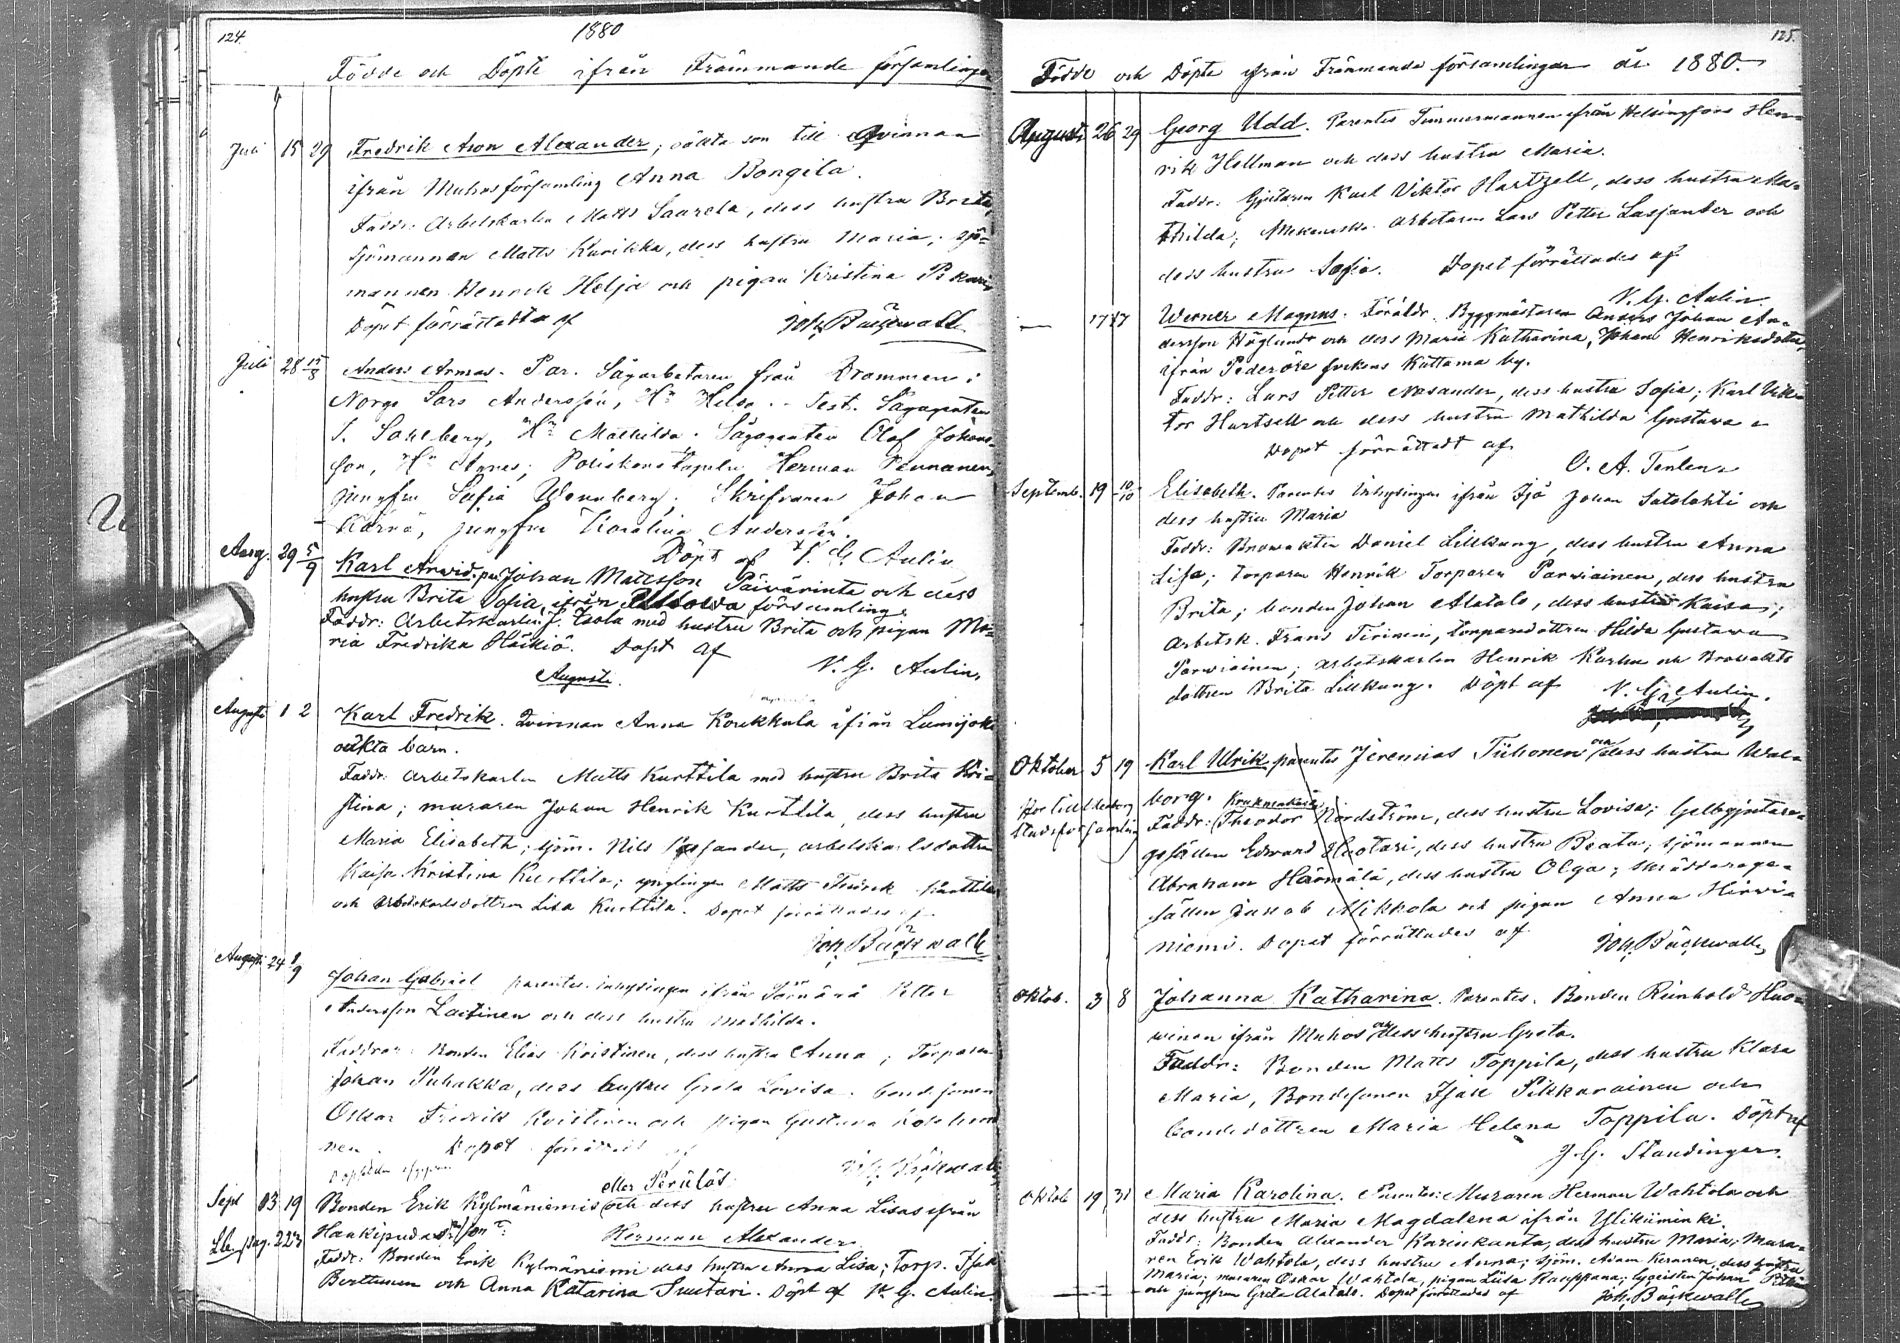 124.
1880
Födde och Döpte ifrån Främmande församlingar
Juli 15 29 Fredrik Aron Alexander, oäkta son till Qvinnan
ifrån Muhos församling Anna Bongila.
Faddr: Arbetskarlen Matts Saarela, dess hustru Brita,
Sjömannen Matts Kurikka, dess hustru Maria, sjö-
mannen Henrik Helja och pigan Kristina
Döpet förrättades af Joh. Bäckwall
Juli 28 15/8 Anders Armas. Par. Sågarbetaren från Drammen i
Norge Lars Andersson, Hu Helsa. Test. Sågagenten
S. Sahlberg, Hu Mathilda. Sågagenten Olof Johans-
son, Hu Agnes; Poliskonstapeln Herman Pennanen,
jungfru Sofia Wennberg; Skrifvaren Johan
Kärnä, jungfru Karolina Andersson.
Döpt af N. G. Aulin
Aug. 29 5/9 Karl Arwid. par. Johan Mattsson Päivärinta och dess
hustru Brita Sofia, ifrån församling.
Faddr: Arbetskarlen J. Isola med hustru Brita och pigan Ma-
ria Fredrika Häikiö. Döpt af N. G. Aulin.
Augusti.
Augusti 1 2 Karl Fredrik. Qvinnan Anna Koukkula ifrån Lumijoki
oäkta barn.
Faddr: Arbetskarlen Matts Kurttila med hustru Brita Kri-
stina; muraren Johan Henrik Kurttila, dess hustru
Maria Elisabeth; sjöm. Nils, arbetskarlsdottren
Kajsa Kristina Kurttila; ynglingen Matts Fredrik Kurttila
och arbetskarlsdottren Lisa Kurttila. Dopet förrättades af
Joh. Bäckwall
Augusti 24 1/9 Johan Gabriel parentes: inhysingen ifrån Petter
Andersson Laitinen och dess hustru Mathilda.
Faddrar: Bonden Elias Kristinen, dess hustru Anna; Torparen
Johan Puhakka, dess hustru Greta Lovisa. bondesonen
Oskar Fredrik Kristinen och pigan Gustava
nen. Dopet förrättadt af
Joh. Bäckwall
eller Perälös
Sept 13 19 Bonden Erik Kylmäniemis och dess hustru Anna Lisas ifrån
Haukipudas son
Herman Alexander.
Faddr: Bonden Erik Kylmäniemi dess hustru Anna Lisa; Torp. Isak
Berttunen och Anna Katarina Suutari. Döpt af N. G. Aulin.
125.
Födde och Döpte ifrån Främmande församlingar år 1880.
Augusti 26 29 Georg Udd. Parentes Timmermannen ifrån Helsingfors Hen-
rik Hellman och dess hustru Maria.
Faddr: Gjutaren Karl Viktor Hartzell, dess hustru Ma-
thilda; Mekaniska arbetaren Lars Petter Lasjander och
dess hustru Sofia. Dopet förrättades af
N. G. Aulin
— 17 Werner Magnus. Föräldr. Byggmästaren Anders Johan An-
dersson Höglund och dess Maria Katharina, Johan Henriksdotter,
ifrån Pedersöre sockens Kattama by.
Faddr: Lars Petter Nasander, dess hustru Sofia; Karl Vik-
tor Hartsell och dess hustru Mathilda Gustava.
Dopet förrättadt af
O. A. Tenlen.
Septemb. 19 10/10 Elisabeth. Parentes Inhysingen ifrån Ijo Johan Satolahti och
dess hustru Maria
Faddr: Browakten Daniel Lillkung, dess hustru Anna
Lisa; Torparen Henrik Torparen Parviainen, dess hustru
Brita; bonden Johan Alatalo, dess hustru Kaisa;
Arbetsk. Frans Tirinen, torparedottren Hilda Gustava
Parviainen; arbetskarlen Henrik Karhu och Browakts
dottren Brita Lillkung. Döpt af N. G. Aulin.
Oktober 5 19 Karl Ulrik. parentes Jeremias Tuhonen och dess hustru Wal-
borg.
Hör till Uleåborg
stadsförsamling
Faddr: Theodor Nordström, dess hustru Lovisa; Gelbgjutare-
gesällen Edward Huotari, dess hustru Beata; sjömannen
Abraham Härmälä, dess hustru Olga; skräddarege-
sällen Jacob Mikkola och pigan Anna Hirvi-
niemi. Dopet förrättades af Joh. Bäckwall
Oktob. 3 8 Johanna Katharina. Parentes. Bonden Reinhold Huo-
vinen ifrån Muhos och dess hustru Greta.
Faddr: Bonden Matts Toppila, dess hustru Klara
Maria, Bondesonen Isak Pikkarainen och
bondedottren Maria Helena Toppila. Döpt af
J. G. Standinger.
Oktob 19 31 Maria Karolina. Parentes: Muraren Herman Wahtola och
dess hustru Maria Magdalena ifrån Ylikiiminki.
Faddr: Bonden Alexander Karinkanta, dess hustru Maria; Mura-
ren Erik Wahtola, dess hustru Anna; sjöm. Adam Keränen, dess hustru
Maria; muraren Oskar Wahtola, pigan Liisa Kauppana; Johan
och jungfrun Greta Alatalo. Dopet förrättades af Joh. Bäckwall